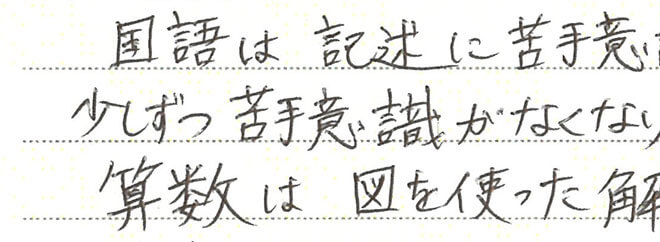 国語は 記述に苦手意
少しずつ苦手意識がなくなり
算数は 図を使った解